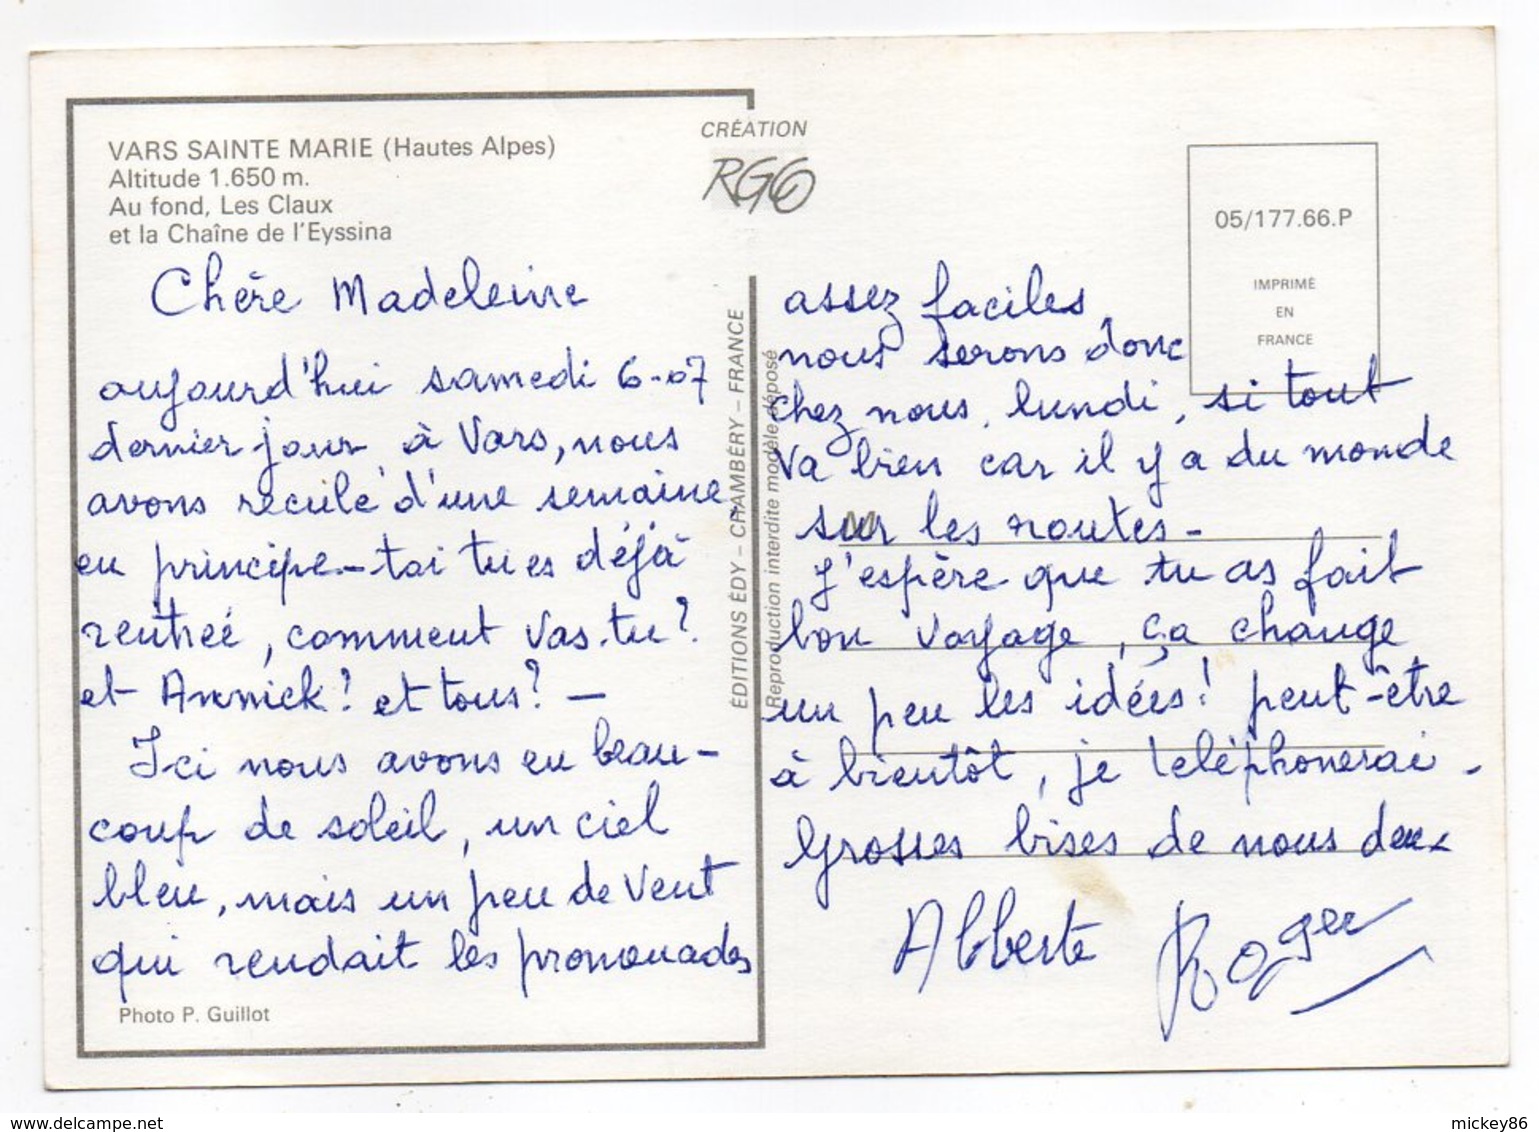 VARS SAINTE MARIE (Hautes Alpes)
Altitude 1.650 m.
Au fond, Les Claux
et la Chaîne de l'Eyssina
Chère Madeleine
aujourd'hui samedi 6-07
dernier jour à Vars, nous
avons reculé d'une semaine,
en principe - toi tu es déjà
rentrée, comment vas-tu?
et Annick? et tous? -
Ici nous avons eu beau-
coup de soleil, un ciel
bleu, mais un peu de vent
qui rendait les promenades
Photo P. Guillot
CRÉATION
RGG
EDITIONS ÉDY - CHAMBÉRY - FRANCE
Reproduction interdite modèle déposé
05/177.66.P
IMPRIMÉ
EN
FRANCE
assez faciles,
nous serons donc
chez nous, lundi, si tout
va bien car il y a du monde
sur les routes -
J'espère que tu as fait
bon voyage, ça change
un peu les idées! peut-être
à bientôt, je téléphonerai -
Grosses bises de nous deux
Alberte Roger
mickey86
delcampe.net